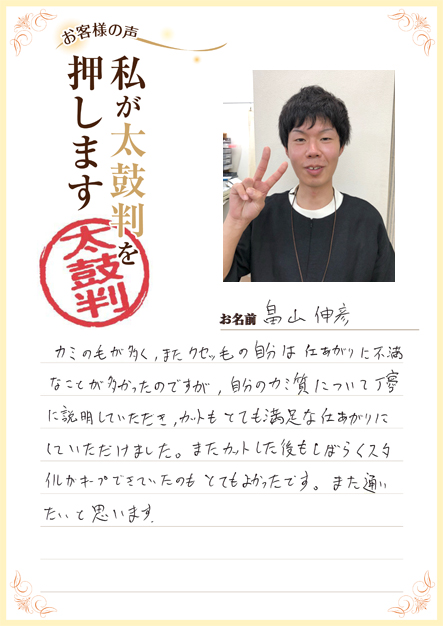 お客様の声
私が太鼓判を
押します
太鼓判
お名前 畠山伸彦
カミの毛が多く,またクセッ毛の自分は仕あがりに不満
なことが多かったのですが,自分のカミ質について丁寧
に説明していただき,カットもとても満足な仕あがりに
していただけました。またカットした後もしばらくスタ
イルがキープできていたのもとてもよかったです。また通い
たいと思います.